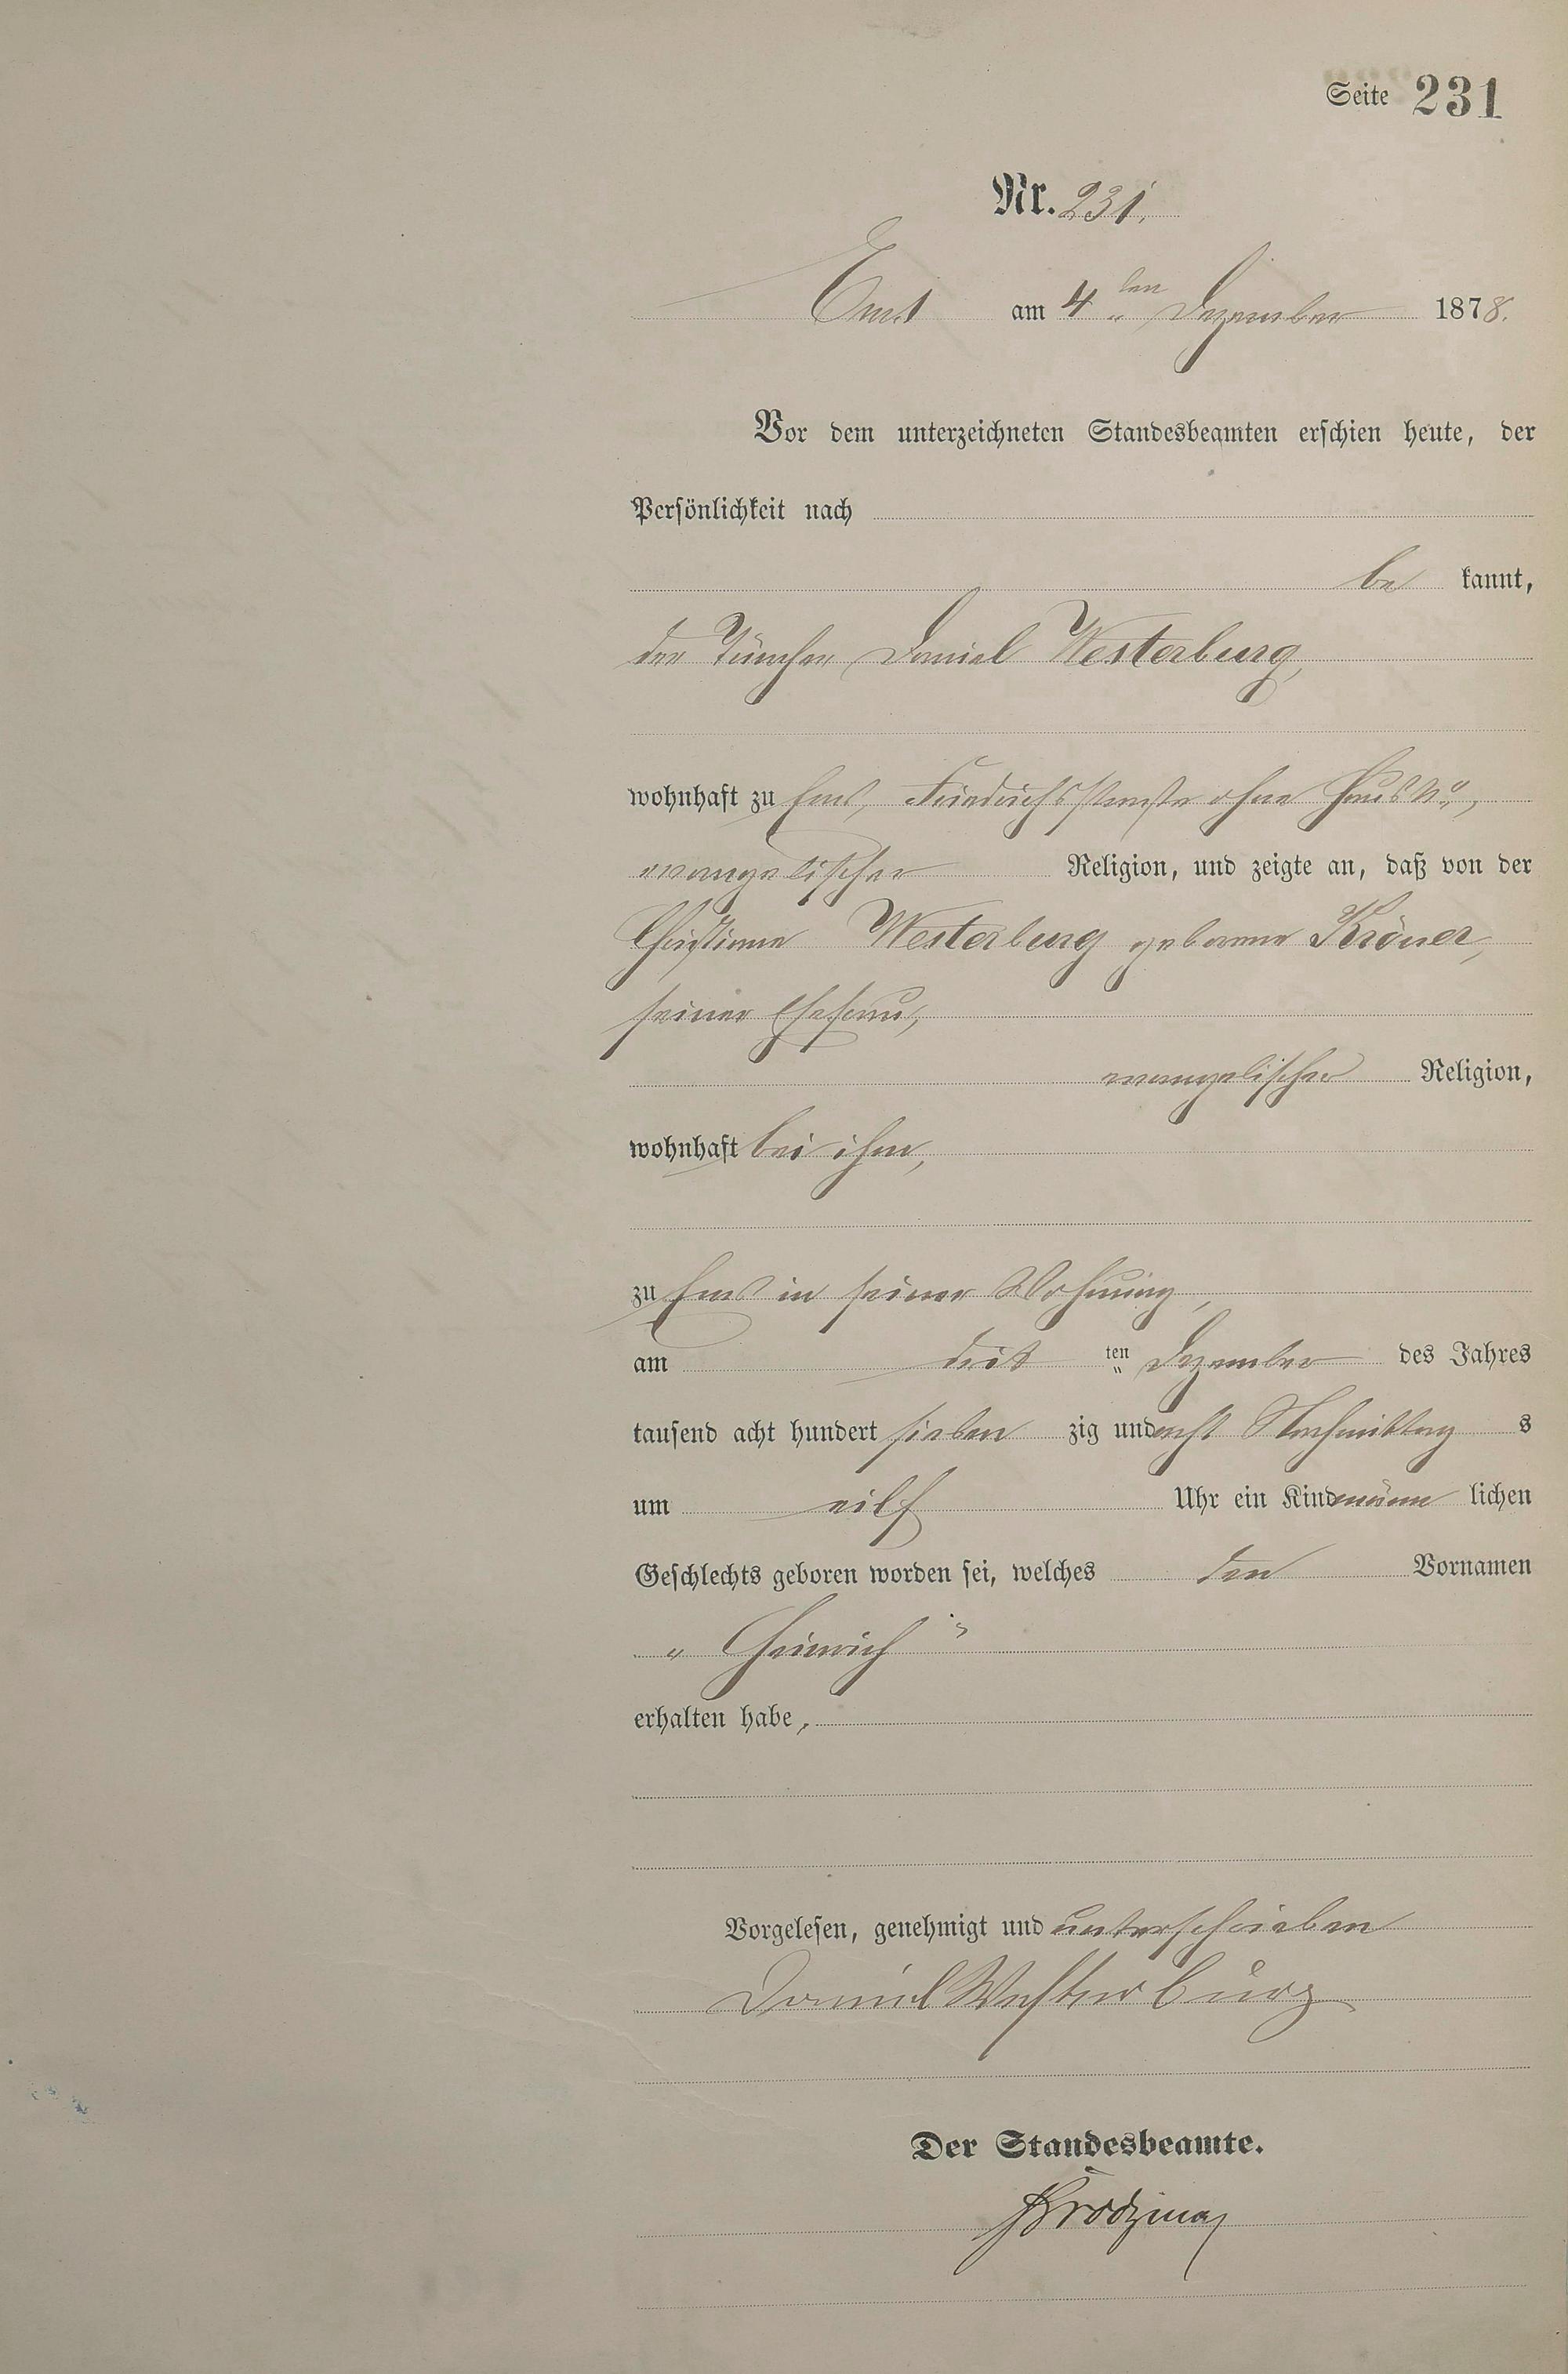 Seite 231
Nr. 231.
Ems am 4ten Dezember 1878.
Vor dem unterzeichneten Standesbeamten erschien heute, der
Persönlichkeit nach
be kannt,
der Tüncher Daniel Westerburg,
wohnhaft zu Ems, Friedrichsstraße ohne Haus No,
evangelischer Religion, und zeigte an, daß von der
Christiane Westerburg geborene Kröner,
seiner Ehefrau,
evangelischer Religion,
wohnhaft bei ihm,
zu Ems in seiner Wohnung,
am ten Dezember des Jahres
tausend acht hundert sieben zig und acht Nachmittag s
um eilf Uhr ein Kind männ lichen
Geschlechts geboren worden sei, welches den Vornamen
„ Heinrich "
erhalten habe,
Vorgelesen, genehmigt und unterschrieben
Daniel Westerburg
Der Standesbeamte.